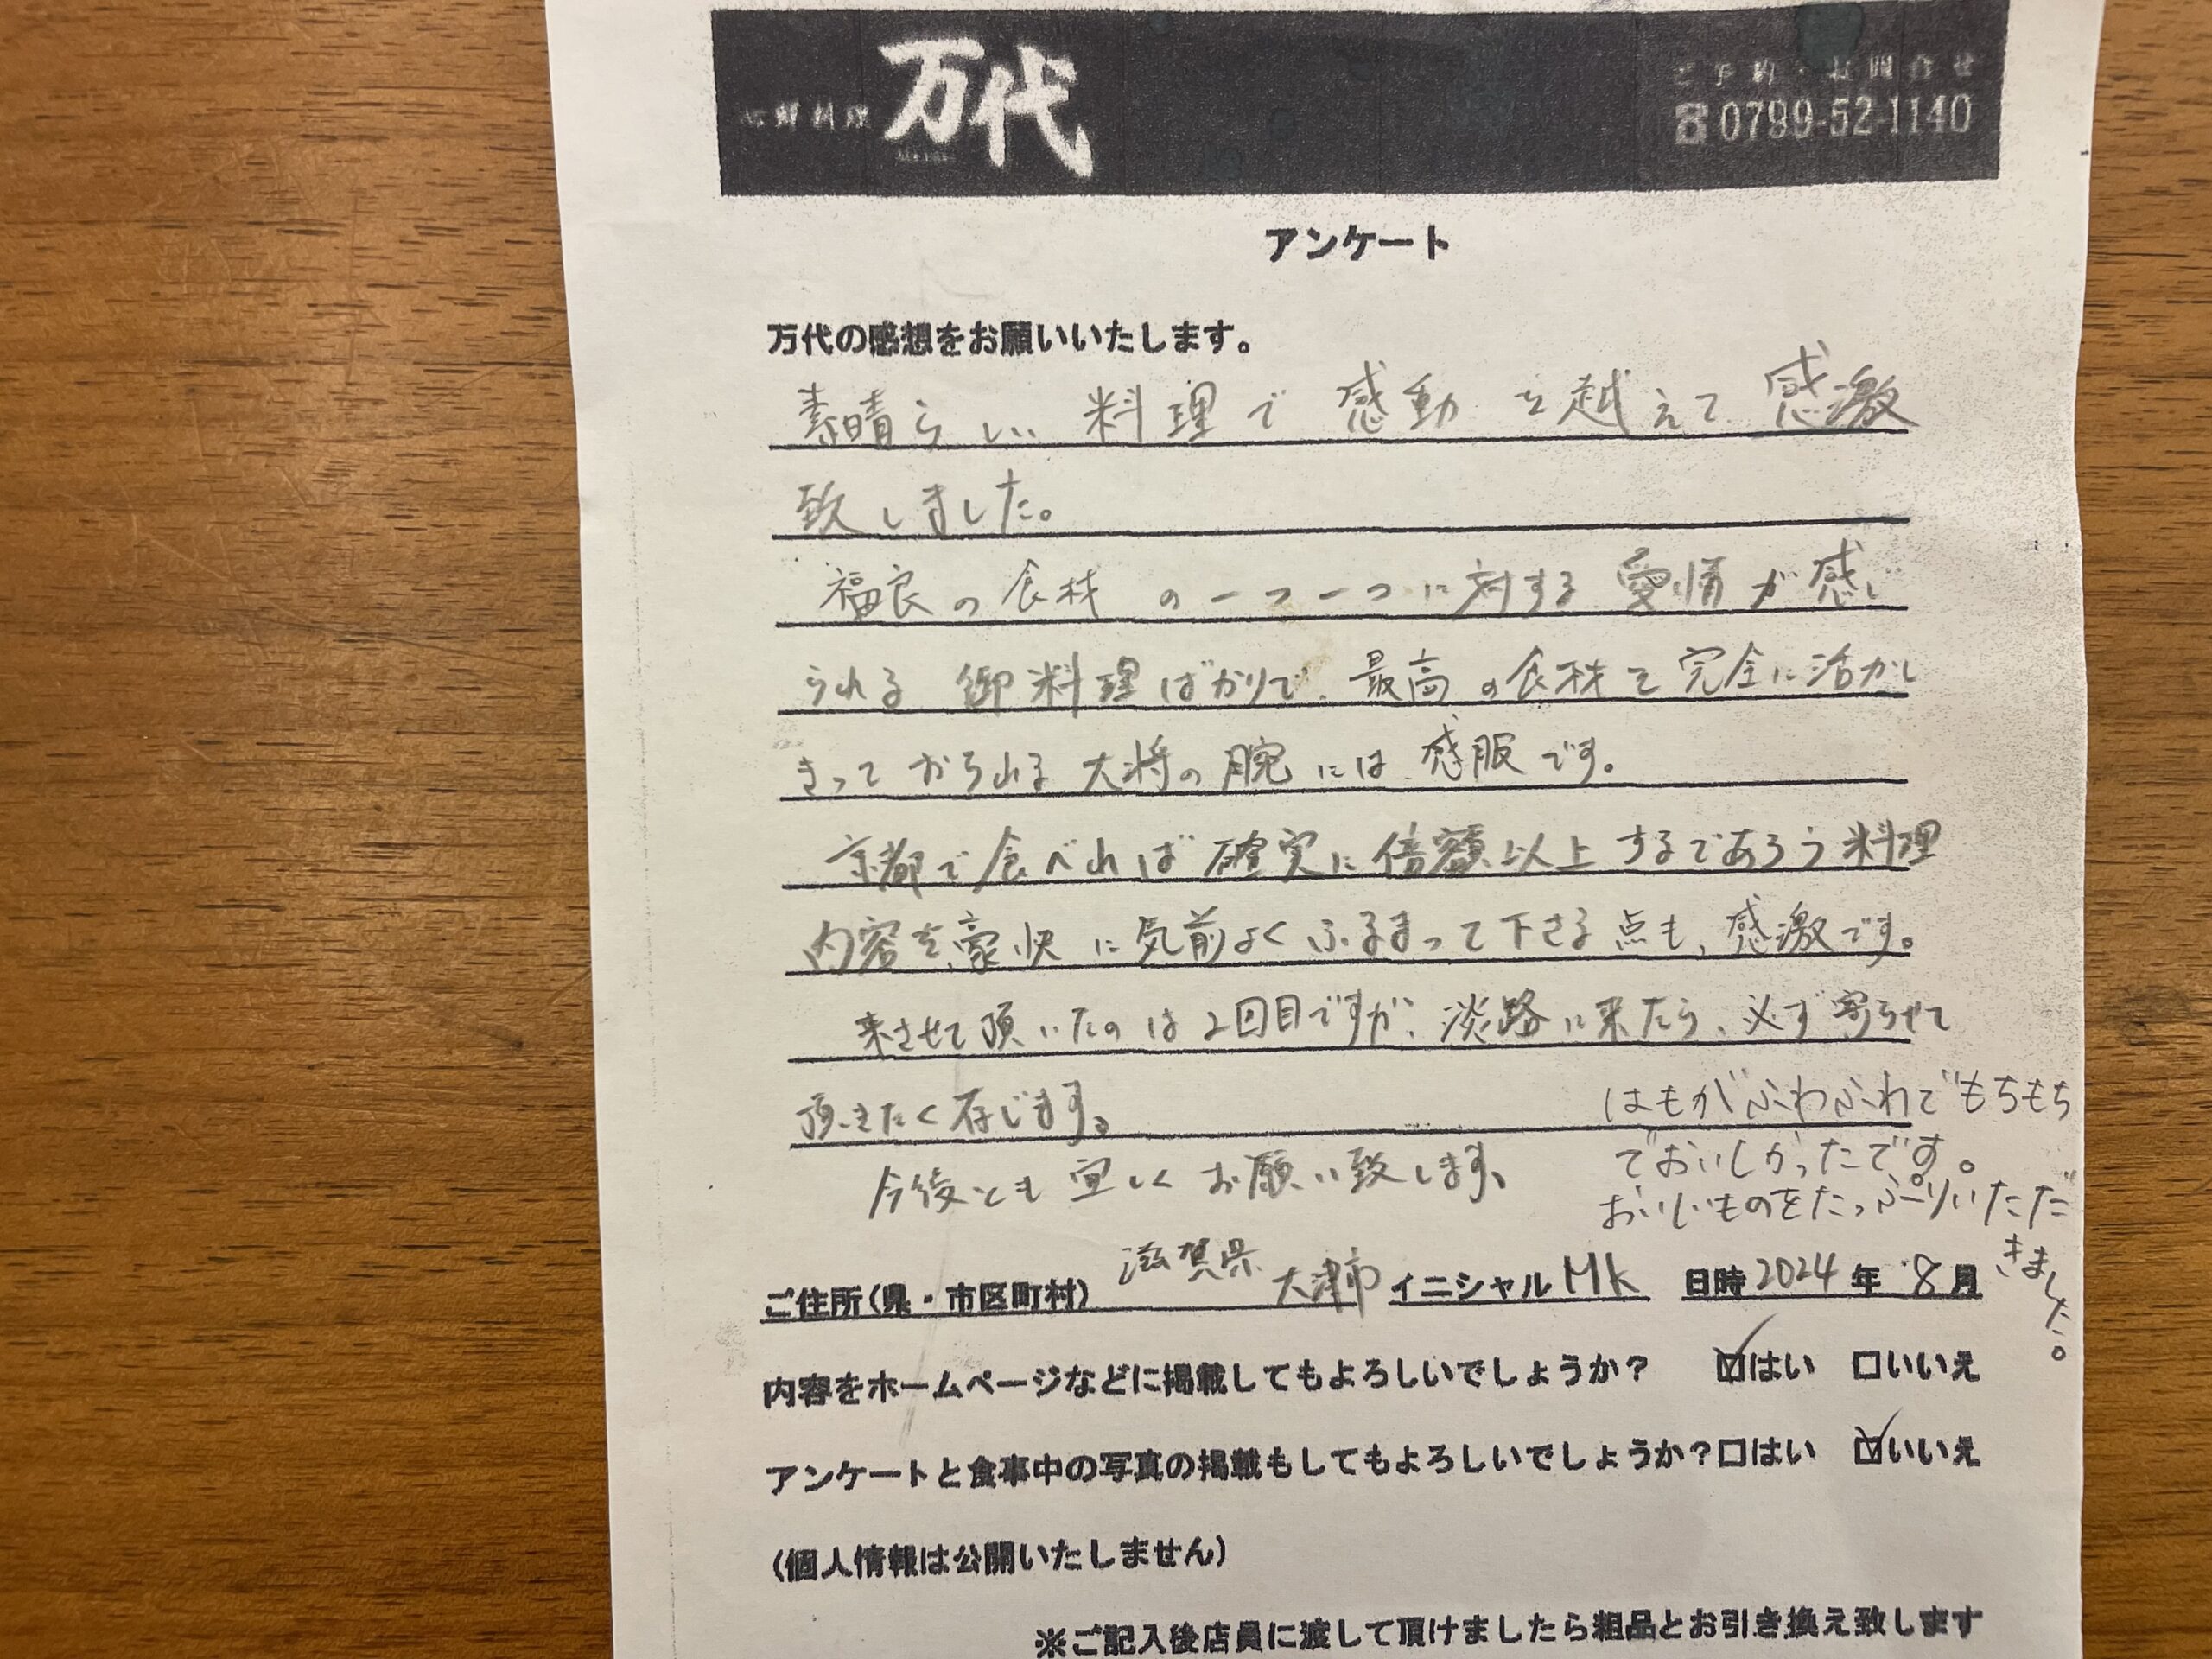 海鮮料理 万代
ご予約・お問合せ
☎0799-52-1140
アンケート
万代の感想をお願いいたします。
素晴らしい料理で感動を越えて感激
致しました。
福良の食材の一つ一つに対する愛情が感じ
られる御料理ばかりで、最高の食材を完全に活かし
きっておられる大将の腕には感服です。
京都で食べれば確実に倍額以上するであろう料理
内容を豪快に気前よくふるまって下さる点も、感激です。
来させて頂いたのは2回目ですが、淡路に来たら、必ず寄らせて
頂きたく存じます。
今後とも宜しくお願い致します。
はもがふわふわでもちもち
でおいしかったです。
おいしいものをたっぷりいただ
きました。
ご住所(県・市区町村) 滋賀県 大津市 イニシャル MK 日時 2024 年 8 月
内容をホームページなどに掲載してもよろしいでしょうか? ☑はい □いいえ
アンケートと食事中の写真の掲載もしてもよろしいでしょうか?□はい ☑いいえ
(個人情報は公開いたしません)
※ご記入後店員に渡して頂けましたら粗品とお引き換え致します